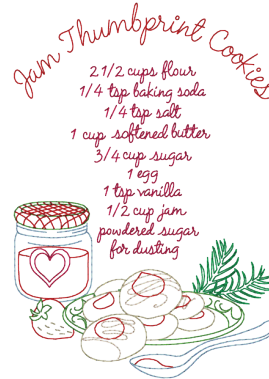 Jam Thumbprint Cookies
2 1/2 cups flour
1/4 tsp baking soda
1/4 tsp salt
1 cup softened butter
3/4 cup sugar
1 egg
1 tsp vanilla
1/2 cup jam
powdered sugar
for dusting